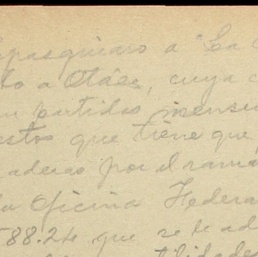 epasquiaro a "La
do a Otáez, cuya
en partidas mensu
estos que tiene que
aderas por el rama
la Oficina Federa
588.24 que se le ad